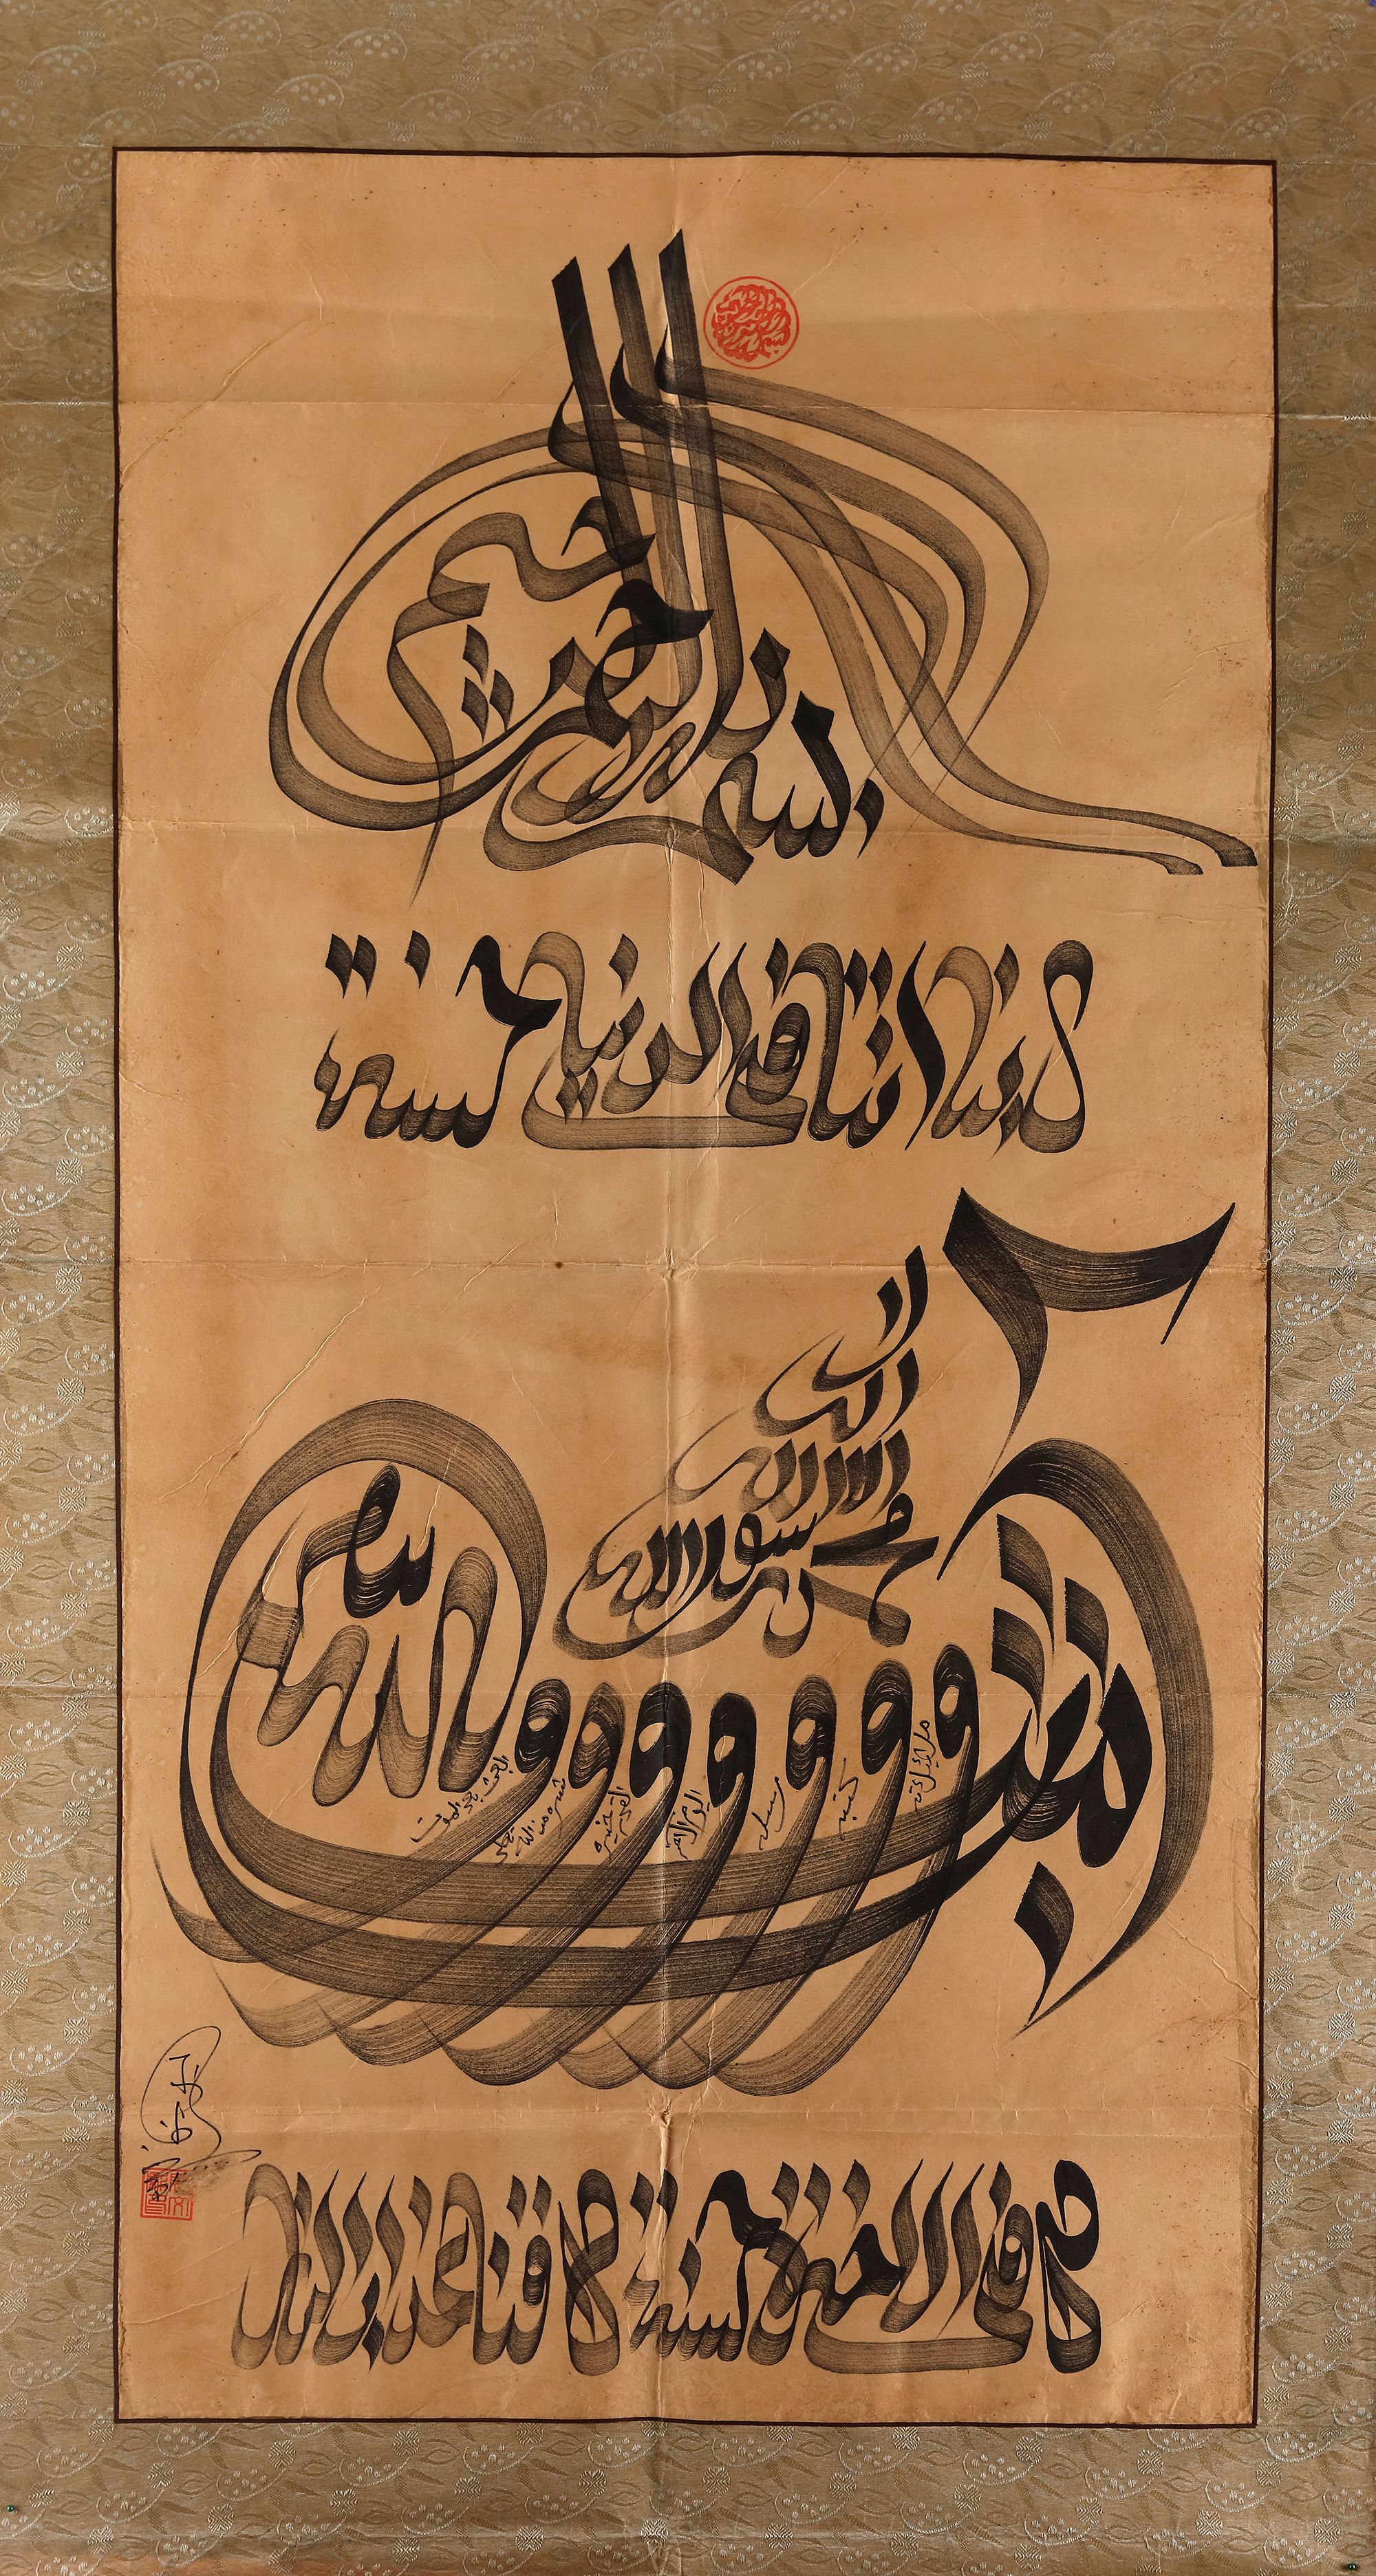 بسم الله الرحمن الرحيم
ربنا اتنا في الدنيا حسنة
لا اله الا الله
محمد رسول الله
امنت بالله و و و و و و و
ملائكته
كتبه
رسله
اليوم الاخر
القدر خيره
شره من الله تعالى
البعث بعد الموت
و في الاخرة حسنة و قنا عذاب النار